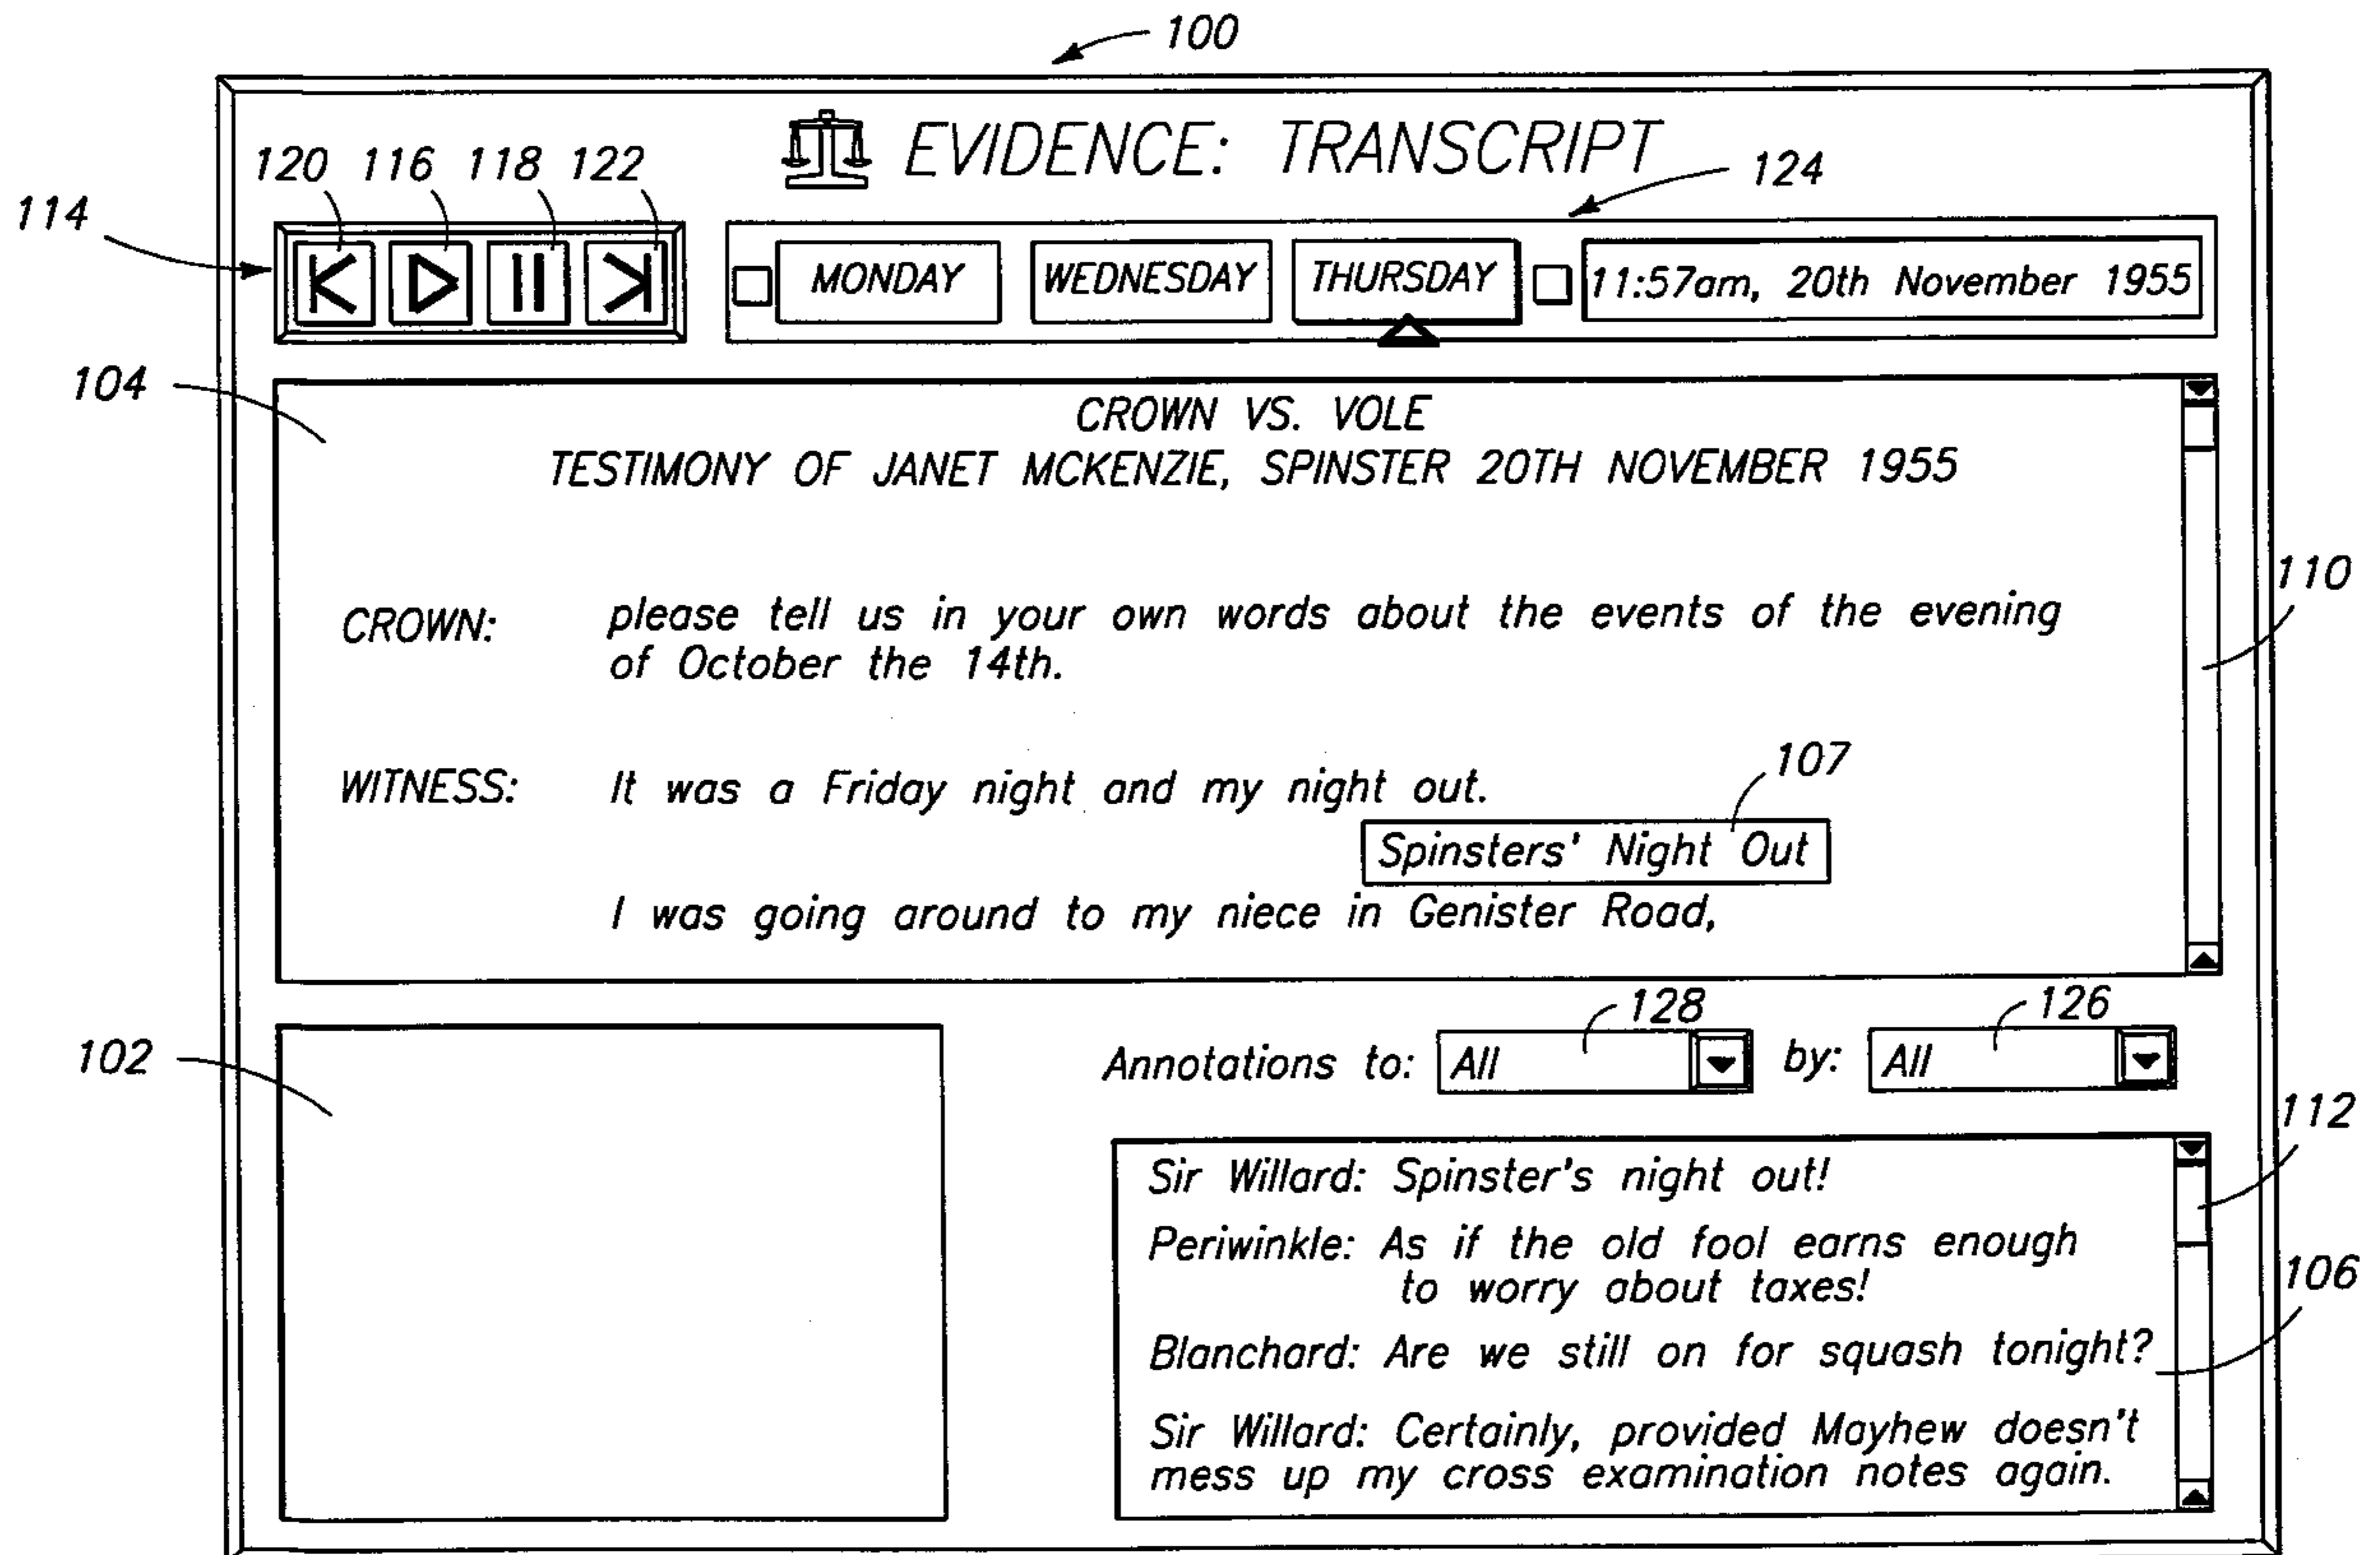 100
EVIDENCE: TRANSCRIPT
120 116 118 122
124
114
MONDAY WEDNESDAY THURSDAY 11:57am, 20th November 1955
104
CROWN VS. VOLE
TESTIMONY OF JANET MCKENZIE, SPINSTER 20TH NOVEMBER 1955
110
CROWN: please tell us in your own words about the events of the evening
of October the 14th.
107
WITNESS: It was a Friday night and my night out.
Spinsters' Night Out
I was going around to my niece in Genister Road,
128 126
102
Annotations to: All by: All
112
Sir Willard: Spinster's night out!
Periwinkle: As if the old fool earns enough
to worry about taxes!
106
Blanchard: Are we still on for squash tonight?
Sir Willard: Certainly, provided Mayhew doesn't
mess up my cross examination notes again.